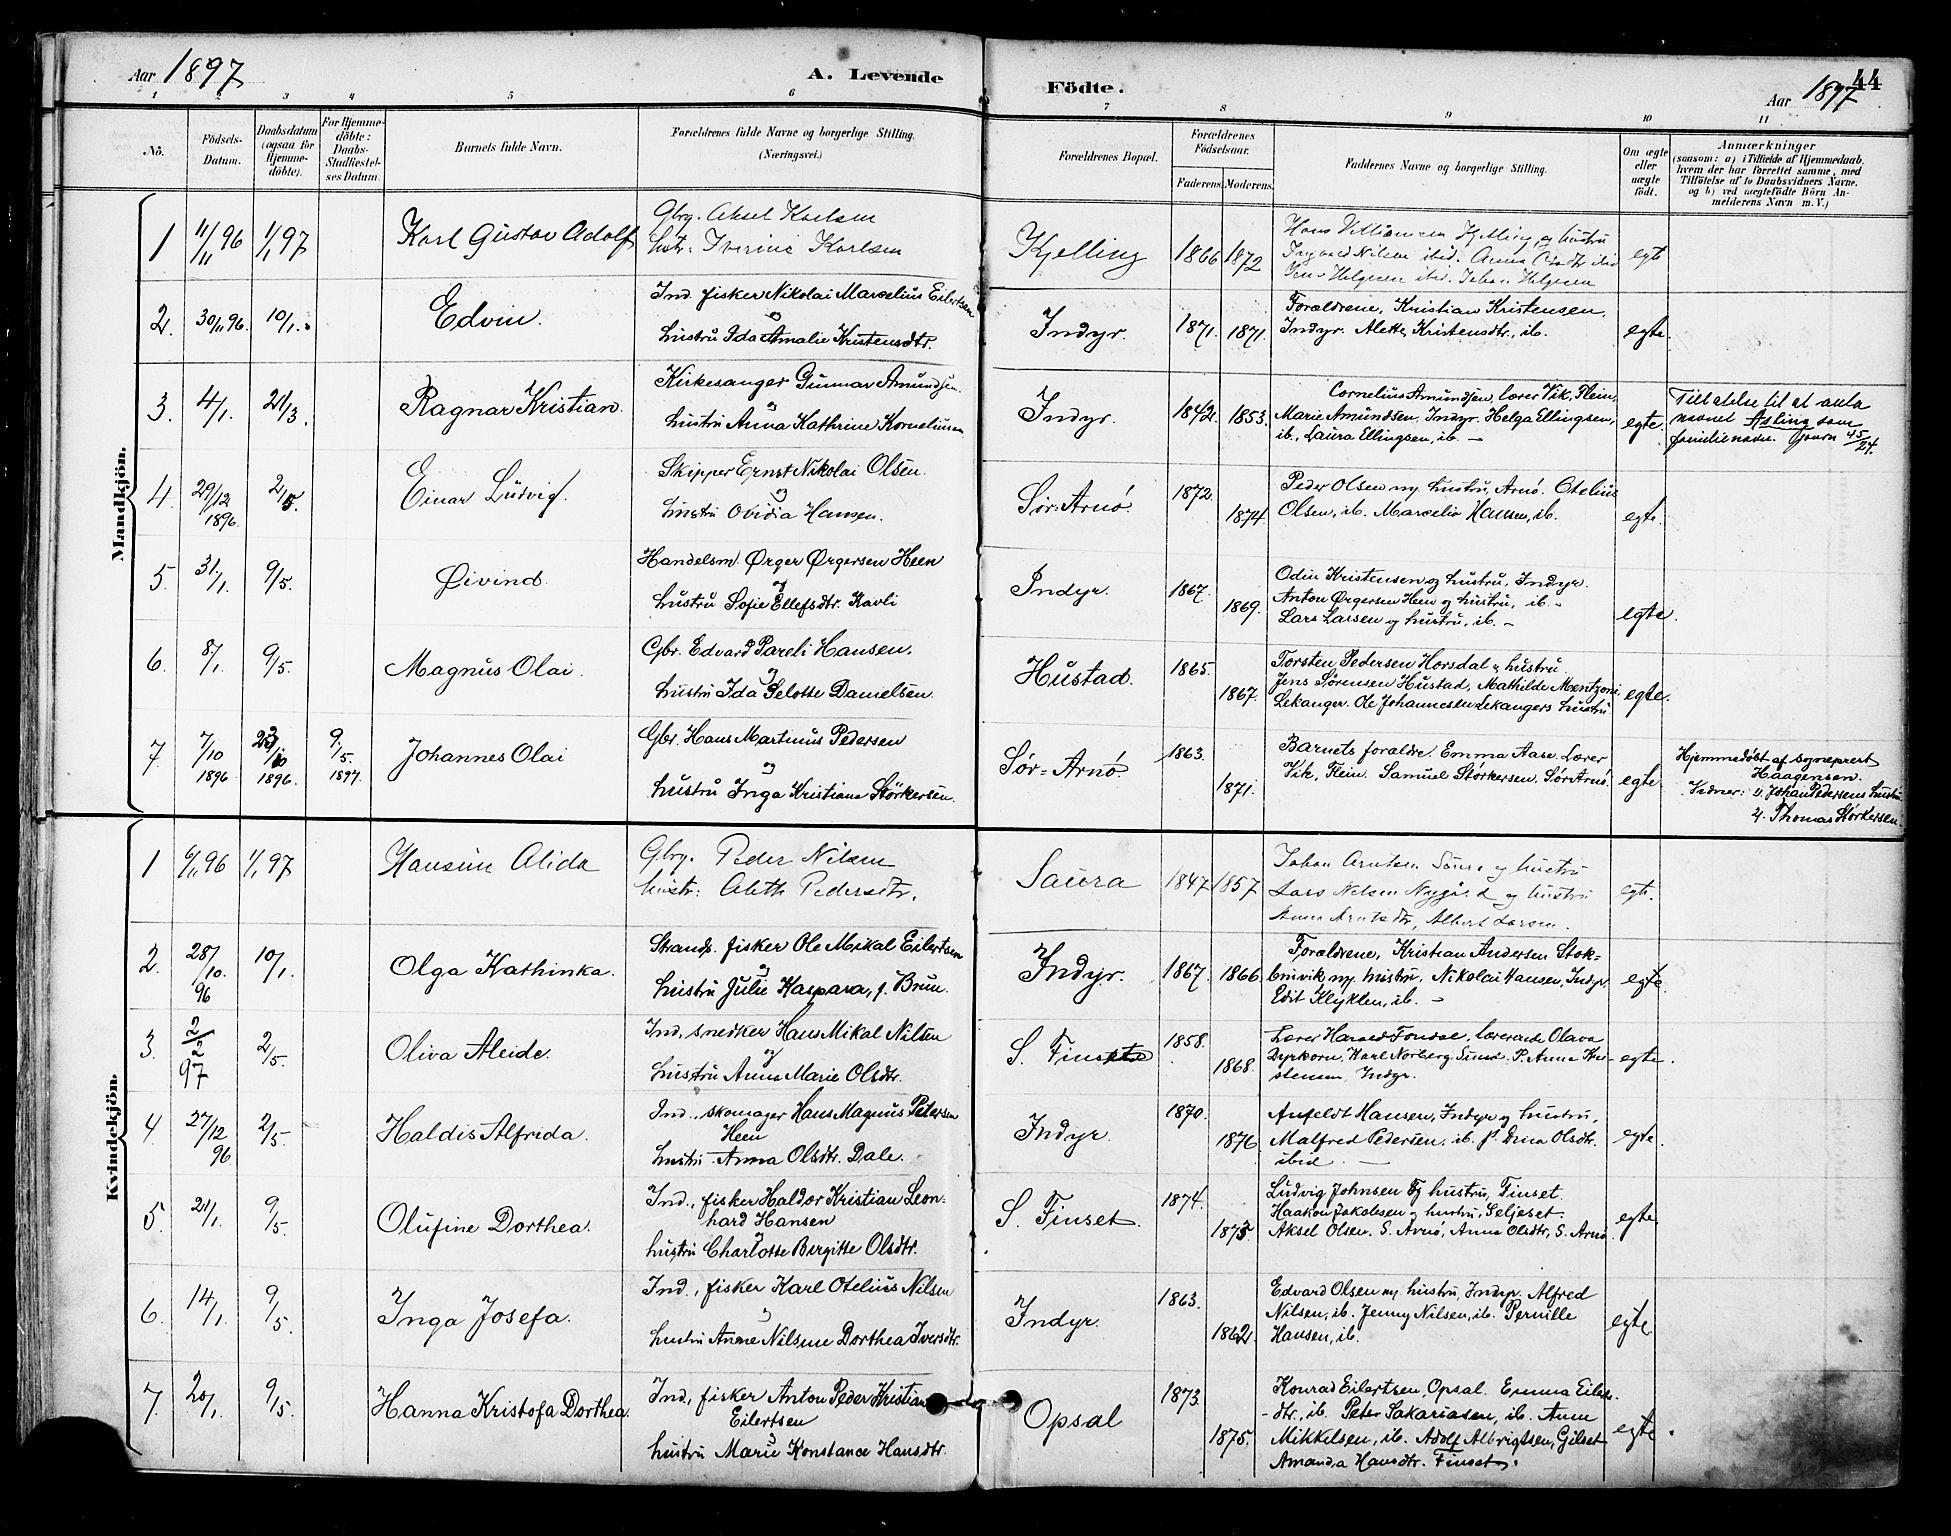 Aar 1897
A. Levende Födte.
Aar 1897
44
1 2 3 4 5 6 7 8 9 10 11
No.
Födsels-Datum.
Daabsdatum (ogsaa for Hjemme-döbte).
For Hjemme-döbte: Daabs-Stadfæstel-ses Datum.
Barnets fulde Navn.
Forældrenes fulde Navne og borgerlige Stilling. (Næringsvei.)
Forældrenes Bopæl.
Forældrenes Födselsaar.
Faderens. Moderens.
Faddernes Navne og borgerlige Stilling.
Om ægte eller uægte födt.
Anmærkninger
(saasom: a) i Tilfælde af Hjemmedaab,
hvem der har forrettet samme, med
Tilföielse af to Daabsvidners Navne,
og b) ved uægtefödte Börn An-
melderens Navn m. V.)
Mandkjön.
1 11/11 96 1/1 97 Karl Gustav Adolf
Gbrg. Aksel Karlsen
hstr. Iverine Karlsen
Kjelling 1866 1872
egt
2. 30/11 96. 10/1. Edvin.
Ind. fisker Nikolai Marcelius Eilertsen
og
hustru Ida Amalie Kristensdtr.
Indyr. 1871. 1871.
Forældrene, Kristian Kristensen,
Indyr. Alette Kristensdtr., ib.
egte.
3. 4/1. 21/3. Ragnar Kristian.
Kirkesanger Gunnar Amundsen.
og
hustru Anna Kathrine Korneliusen
Indyr. 1842. 1853.
Cornelius Amundsen, lærer Vik, Flein,
Marie Amundsen, Indyr. Helga Ellingsen,
ib., Laura Ellingsen, ib. –
egte.
Tilladelse til at anta
navnet Asling som
familienavn. Journ 45/24.
4. 29/12 1896. 2/5. Einar Ludvig.
Skipper Ernst Nikolai Olsen.
og
hustru Ovidia Hansen.
Sør-Arnø. 1872. 1874.
Peder Olsen m. hustru, Arnø. Otelius
Olsen, ib. Marcelia Hansen, ib.
egte.
5. 31/1. 9/5. Øivind.
Handelsm. Ørger Ørgersen Heen
og
hustru Sofie Ellefsdtr. Kavli
Indyr. 1867. 1869.
Odin Kristensen og hustru, Indyr.
Anton Ørgersen Heen og hustru, ib. –
Lars Larsen og hustru, ib. –
egte.
6. 8/1. 9/5. Magnus Olai.
Gbr. Edvard Pareli Hansen.
og
hustru Ida Selotte Danielsen.
Hustad. 1865. 1867.
Torsten Pedersen Horsdal & hustru
Jens Sørensen Hustad, Mathilde Mentzoni
Lekanger. Ole Johannesen Lekangers hustru
egte.
7. 7/10 1896. 1896. 9/5. 1897. Johannes Olai
Gbr. Hans Martinus Pedersen
og
hustru Inga Kristiana Størkersen.
Sør-Arnø. 1863. 1871.
Barnets forældre. Emma Aase. Lærer
Vik, Flein. Samuel Størkersen, Sør Arnø.
egte.
Hjemmedøbt af sogneprest
Haagensen.
Vidner: 1. Johan Pedersens hustru
2. Thomas Størkersen.
Kvindekjön.
1 6/11 96 1/1 97 Hansine Alida
Gbrg. Peder Nilsen
hustr: Aleth Pedersdtr.
Saura 1847 1857
Johan Arntsen Saura og hustru
Lars Nilsen Nygård og hustru
Anna Arntsdtr, Albert Larsen.
egt.
2. 28/10. 96 10/1. Olga Kathinka.
Strands. fisker Ole Mikal Eilertsen
og
hustru Julie Kaspara, f. Brun.
Indyr. 1867. 1866.
Forældrene, Kristian Andersen Stok-
vik m. hustru, Nikolai Hansen, Indyr.
Edit Klyklen, ib. –
egte.
3. 2/2 97 2/5. Oliva Aleide.
Ind., snedker Hans Mikal Nilsen
og
hustru Anna Marie Olsdtr.
S. Finset 1858. 1868.
Lærer Harald Fondal, lærerinde Olava
Dyrkorn, Karl Norberg, Sund. P. Anna Kri-
stensen, Indyr.
egte.
4. 27/12 96. 2/5. Haldis Alfrida.
Ind., skomager Hans Magnus Petersen
Heen
hustru Anna Olsdtr. Dale.
Indyr. 1870. 1876.
Anfeldt Hansen, Indyr og hustru,
Malfred Pedersen, ib. P. Dina Olsdtr.
ibid. –
egte.
5. 21/1. 9/5. Olufine Dorthea.
Ind., fisker Haldor Kristian Leon-
hard Hansen
og
hustru Charlotte Bergitte Olsdtr.
S. Finset. 1874. 1875.
Ludvig Johnsen og hustru, Finset.
Haakon Jakobsen og hustru, Seljeset.
Aksel Olsen, S. Arnø, Anna Olsdtr, S. Arnø.
egte.
6. 14/1. 9/5. Inga Josefa.
Ind., fisker Karl Otelius Nilsen
og
hustru Anne Nilsine Dorthea Iversdtr.
Indyr. 1863. 1862.
Edvard Olsen m. hustru, Indyr. Alfred
Nilsen, ib. Jenny Nilsen, ib. Pernille
Hansen, ib.
egte.
7. 20/1. 9/5. Hanna Kristofa Dorthea.
Ind., fisker Anton Peder Kristian
Eilertsen
og
hustru Marie Konstance Hansdtr.
Opsal 1873. 1875.
Konrad Eilertsen, Opsal. Emma Eilers-
dtr., ib. Peter Sakariasen, ib. Anne
Mikkelsen, ib. Adolf Albrigtsen, Gilset
Amanda Hansdtr. Finset.
egte.